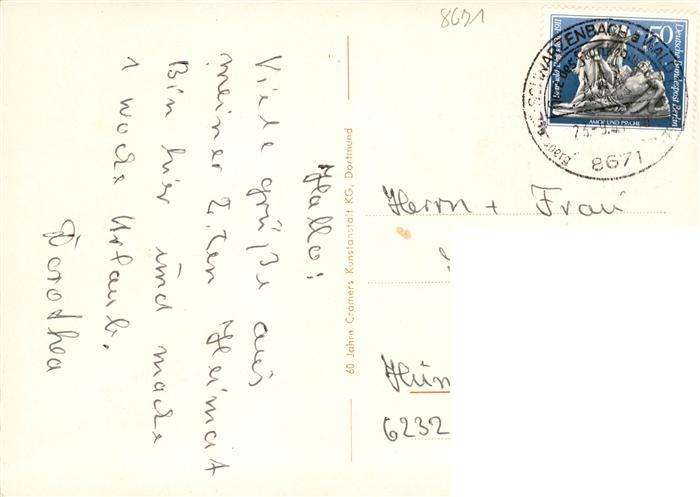 8671
Hallo!
Viele Grüße aus
meiner 2. ten Heimat
Bin hier und mache
1 Woche Urlaub.
Dorothea
60 Jahre Cramers Kunstanstalt KG, Dortmund
Deutsche Bundespost Berlin
50
PSYCHE UND AMOR
SCHWARZENBACH a. WALD
8671
Herrn + Frau
Hün
6232